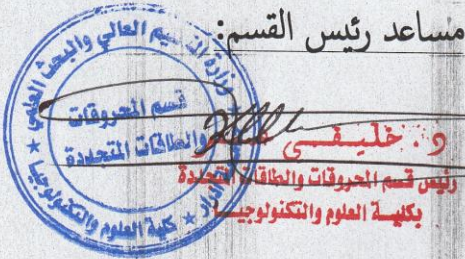 مساعد رئيس القسم:
وزارة التعليم العالي والبحث العلمي
قسم المحروقات
والطاقات المتجددة
كلية العلوم والتكنولوجيا
د. خليفي
رئيس قسم المحروقات والطاقات المتجددة
بكلية العلوم والتكنولوجيا